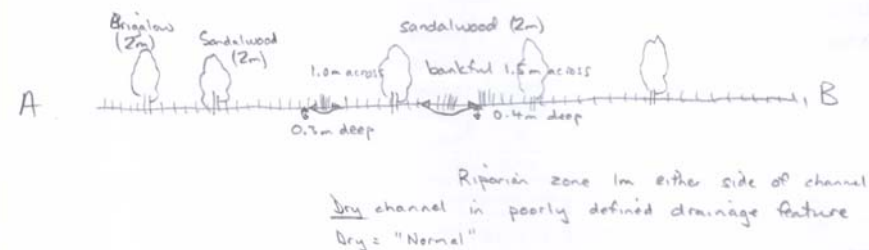 Brigalow
(2m)
Sandalwood
(2m)
sandalwood (2m)
1.0m across
bankful 1.5m across
A
B
0.3m deep
0.4m deep
Riparian zone 1m either side of channel
Dry channel in poorly defined drainage feature
Dry = "Normal"